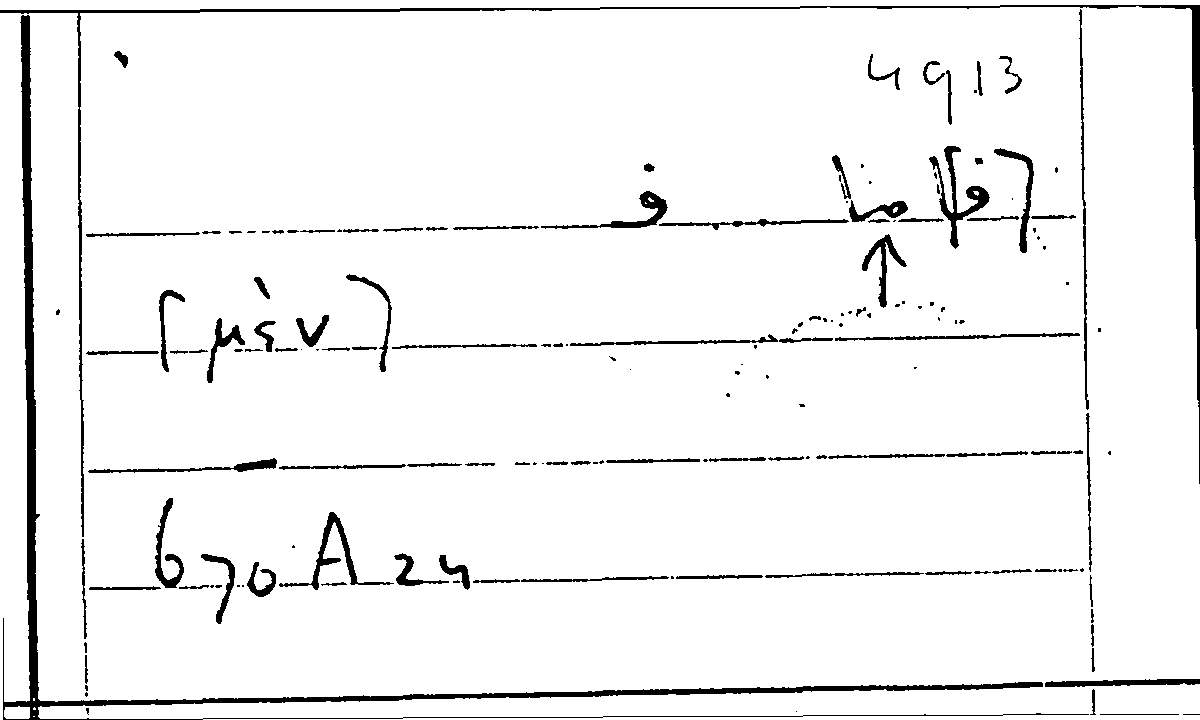 4913
[ف]اما ... ف
[μὲν]
—
670A24